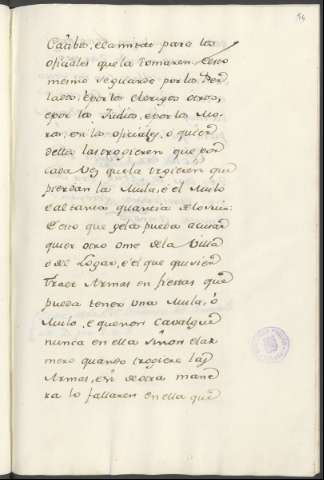 Cañibo, e la mitad para los
oficiales que la tomaren. E esto
mesmo se guarde por los Per
lados, e por los clerigos otrosi,
e por los Judios, e por los Mo
ros, en los oficiales, o quier
dellos las trogieren que por
cada vez que la trogieren que
pierdan la Mula, o el Mulo
e al tanta quantia
E esto que gelo pueda acusar
quier otro ome de la Villa
o del Logar, e el que quisier
traer Armas en fiestas que
pueda tener una Mula, o
Mulo, e que non Cavalgue
nunca en ella sinon el dia
mero quando trogiere las
Armas, e si de otra mane
ra lo fallaren en ella que